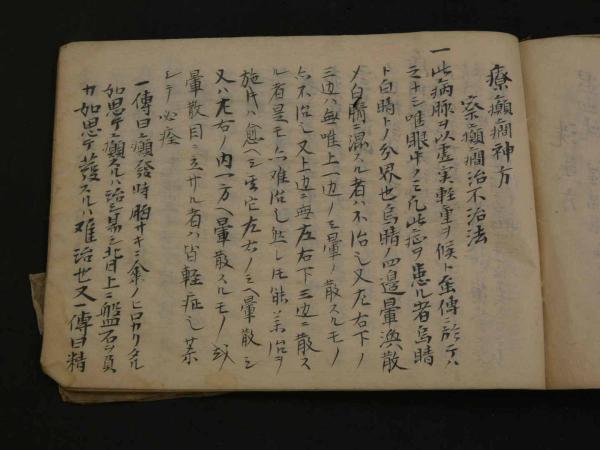 療癲癇神方
察癲癇治不治法
一此病脉ヲ以虚実軽重ヲ候ト雖傳ノ於テハ
之ナシ唯眼中ノミ凡此症ヲ患ル者烏睛
ト白睛トノ分界也烏睛ノ四邊暈渙散
メ白睛ニ混スル者ハ不治也又左右下ノ
三边ハ無唯上一边ノミ暈ノ散スルモノ
亦不治也又上边ニ無左右下三边ニ散ス
ル者是モ亦难治也然レ𪜈能薬治ヲ
施片ハ愈ヘシ又左右ノミヘ暈散シ
又ハ左右ノ内一方ヘ暈散スルモノ或
暈散目ニ立サル者ハ皆軽症也薬
シテ必痊
一傳曰癲發時胸サキニ傘ノヒロカリタル
如思テ癲スルハ治シ易シ背上ニ盤石ヲ負
カ如思テ發スルハ难治也又一傳曰精